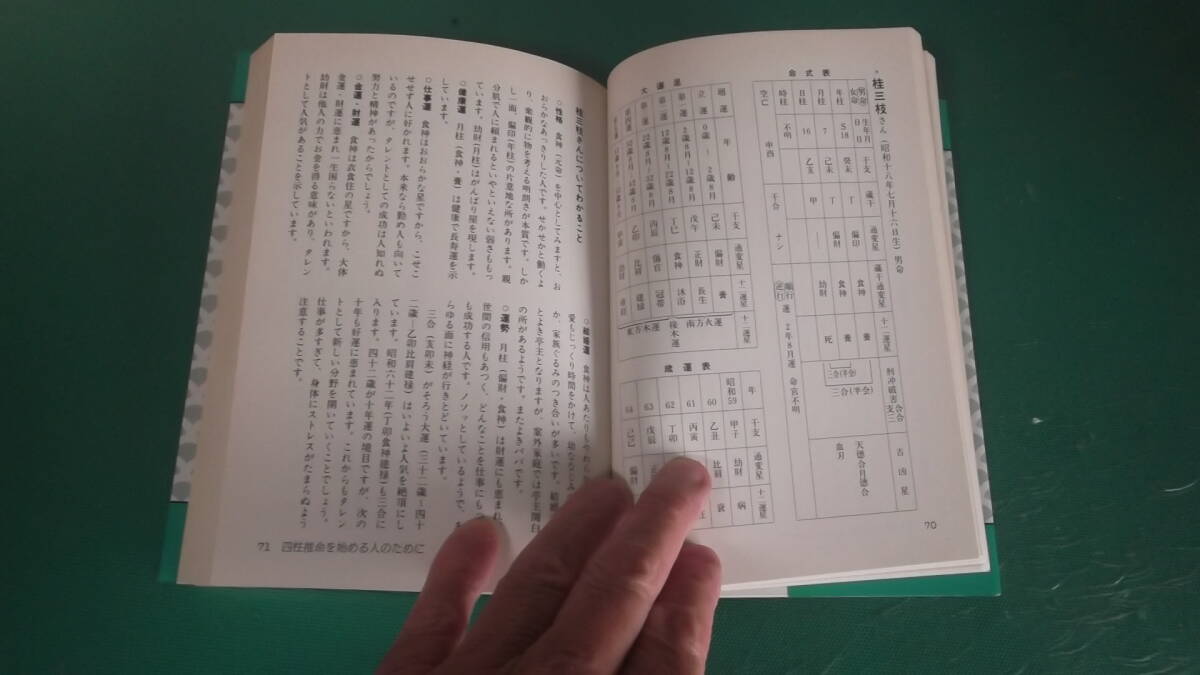 桂三枝さん(昭和十八年七月十六日生)男命
命式表
男命 女命 生年月日 干支 蔵干 通変星 蔵干通変星 十二運星 刑冲破害 支合 三合 吉凶星
年柱 S18 癸未 丁 偏印 食神 養
月柱 7 己未 丁 偏財 食神 養
日柱 16 乙亥 甲 劫財 死
時柱 不明
三合(半会)
三合(半会)
天徳合月徳合
血刃
空亡 申酉 干合 ナシ 順行 逆行 運 2年8月運 命宮不明
大運表
運 年齢 干支 通変星 十二運星
立運 0歳〜2歳8月 己未 偏財 養
第一運 2歳8月〜12歳8月 戊午 正財 長生
第二運 12歳8月〜22歳8月 丁巳 食神 沐浴
第三運 22歳8月〜32歳8月 丙辰 傷官 冠帯
乙卯 比肩 建禄
南方火運
接木運
東方木運
歳運表
年 干支 通変星 十二運星
昭和59 甲子 劫財 病
60 乙丑 比肩 衰
61 丙寅
62 丁卯
63 戊辰
64 己巳 偏財
70
桂三枝さんについてわかること
○性格 食神(元命)を中心としてみますと、お
おらかなあっさりした人です。せかせかと働くよ
り、楽観的に物を考える明朗さが本質です。しか
し一面、偏印(年柱)の片意地な所があります。親
分肌で人に頼まれるといやといえない弱さももっ
ています。劫財(月柱)はがんばり屋を現します。
○健康運 月柱(食神・養)は健康で長寿運を示
しています。
○仕事運 食神はおおらかな星ですから、こせこ
せせず人に好かれます。本来なら勤め人も向いて
いるのですが、タレントとしての成功は人知れぬ
努力と精神があったからでしょう。
○金運・財運 食神は衣食住の星ですから、大体
金運・財運に恵まれ一生困らないといわれます。
劫財は他人の力でお金を得る意味があり、タレン
トとして人気があることを示しています。
○結婚運 食神は人あたりもやわらか
愛もじっくり時間をかけて、幼ななじみ
か、家族ぐるみのつき合いが多いです。結婚
とよき亭主となりますが、案外家庭では亭主関白
の所があるようです。またよきパパです。
○運勢 月柱(偏財・食神)は財運にも恵まれ
世間の信用もあつく、どんなことを仕事にもっ
も成功する人です。ノソッとしているようで、あ
らゆる面に神経が行きとどいています。
三合(亥卯未)がそろう大運(三十二歳〜四十
二歳・乙卯比肩建禄)はいよいよ人気を絶頂にし
ています。昭和六十二年(丁卯食神建禄)も三合に
入ります。四十二歳が十年運の境目ですが、次の
十年も好運に恵まれています。これからもタレン
トとして新しい分野を開いていくことでしょう。
仕事が多すぎて、身体にストレスがたまらぬよう
注意することです。
71 四柱推命を始める人のために